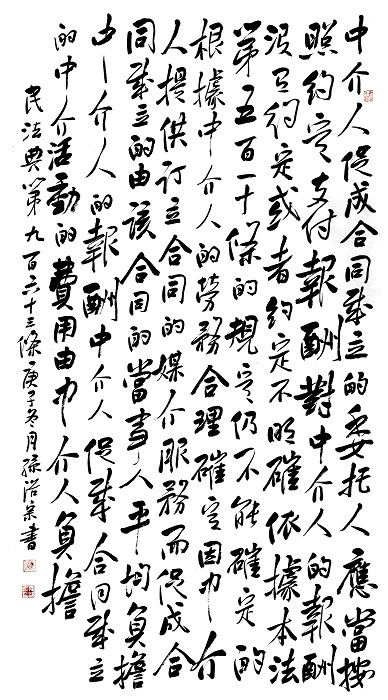 中介人促成合同成立的委托人應當按
照約定支付報酬對中介人的報酬
没有約定或者約定不明確依據本法
第五百一十條的規定仍不能確定的
根據中介人的勞務合理確定因中介
人提供訂立合同的媒介服務而促成合
同成立的由該合同的當事人平均負擔
中介人的報酬中介人促成合同成立
的中介活動的費用由中介人負擔
民法典第九百六十三條庚子冬月孫宗書